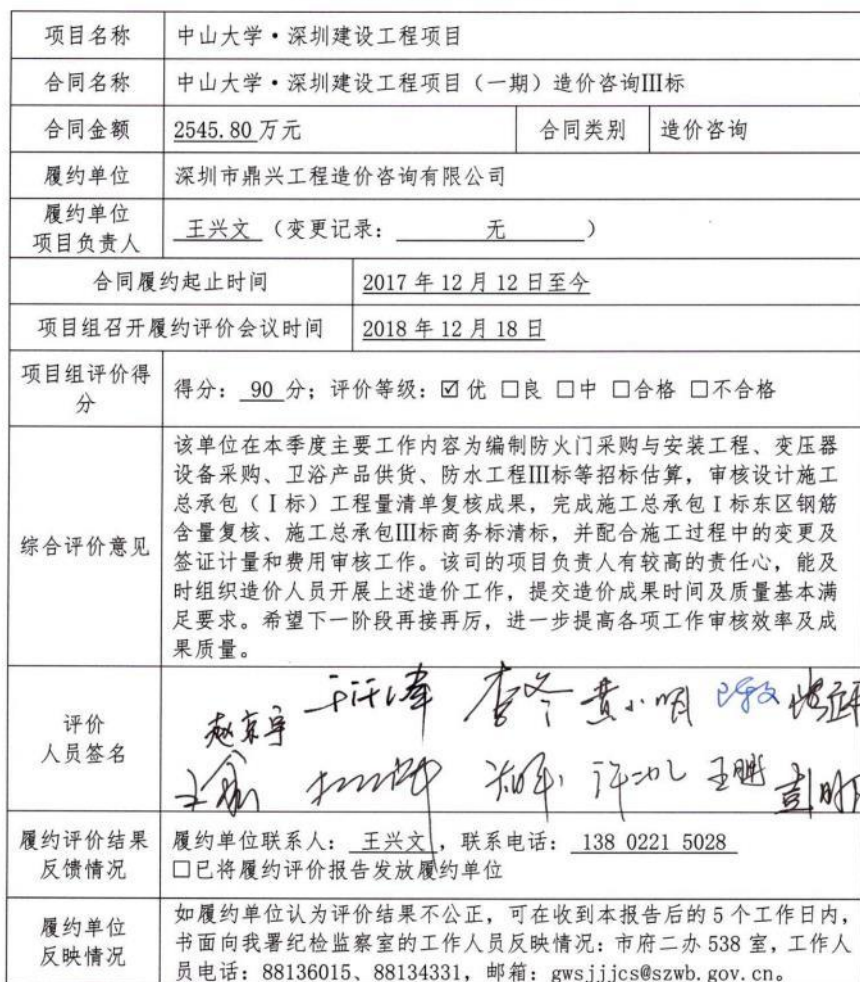 项目名称 中山大学·深圳建设工程项目
合同名称 中山大学·深圳建设工程项目（一期）造价咨询Ⅲ标
合同金额 2545.80万元 合同类别 造价咨询
履约单位 深圳市鼎兴工程造价咨询有限公司
履约单位
项目负责人 王兴文（变更记录： 无 ）
合同履约起止时间 2017年12月12日至今
项目组召开履约评价会议时间 2018年12月18日
项目组评价得
分 得分： 90 分；评价等级：☑优 □良 □中 □合格 □不合格
综合评价意见
该单位在本季度主要工作内容为编制防火门采购与安装工程、变压器
设备采购、卫浴产品供货、防水工程Ⅲ标等招标估算，审核设计施工
总承包（Ⅰ标）工程量清单复核成果，完成施工总承包Ⅰ标东区钢筋
含量复核、施工总承包Ⅲ标商务标清标，并配合施工过程中的变更及
签证计量和费用审核工作。该司的项目负责人有较高的责任心，能及
时组织造价人员开展上述造价工作，提交造价成果时间及质量基本满
足要求。希望下一阶段再接再厉，进一步提高各项工作审核效率及成
果质量。
评价
人员签名
赵京宇 李冬 黄小明
王鹏
履约评价结果
反馈情况
履约单位联系人： 王兴文 ，联系电话： 138 0221 5028
□已将履约评价报告发放履约单位
履约单位
反映情况
如履约单位认为评价结果不公正，可在收到本报告后的5个工作日内，
书面向我署纪检监察室的工作人员反映情况：市府二办538室，工作人
员电话：88136015、88134331，邮箱：gwsjjjcs@szwb.gov.cn。